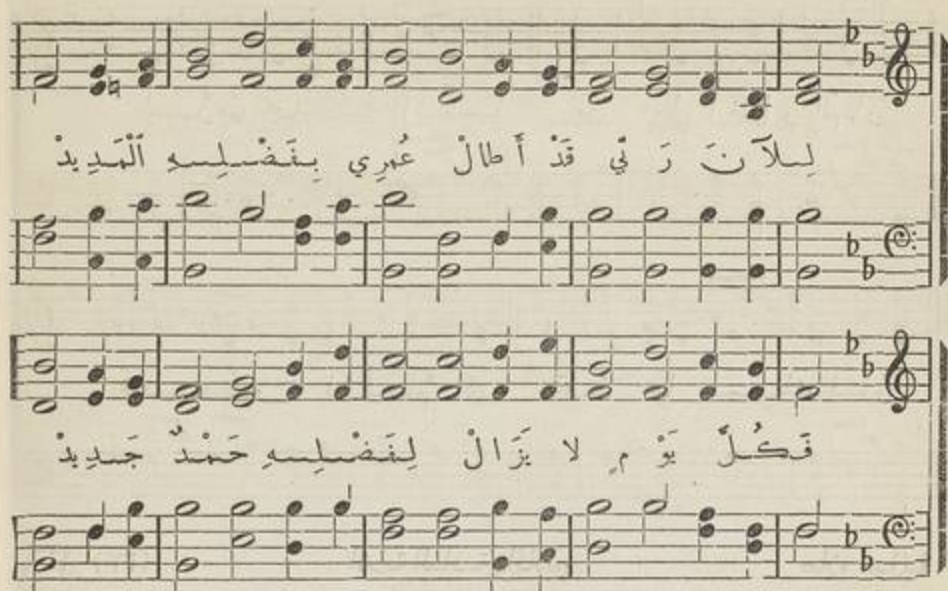 لِلآنَ رَبِّي قَدْ أَطالْ عُمرِي بِفَضْلِهِ ٱلْمَدِيدْ
فَكُلَّ يَوْمٍ لا يَزَالْ لِفَضْلِهِ حَمْدٌ جَدِيدْ